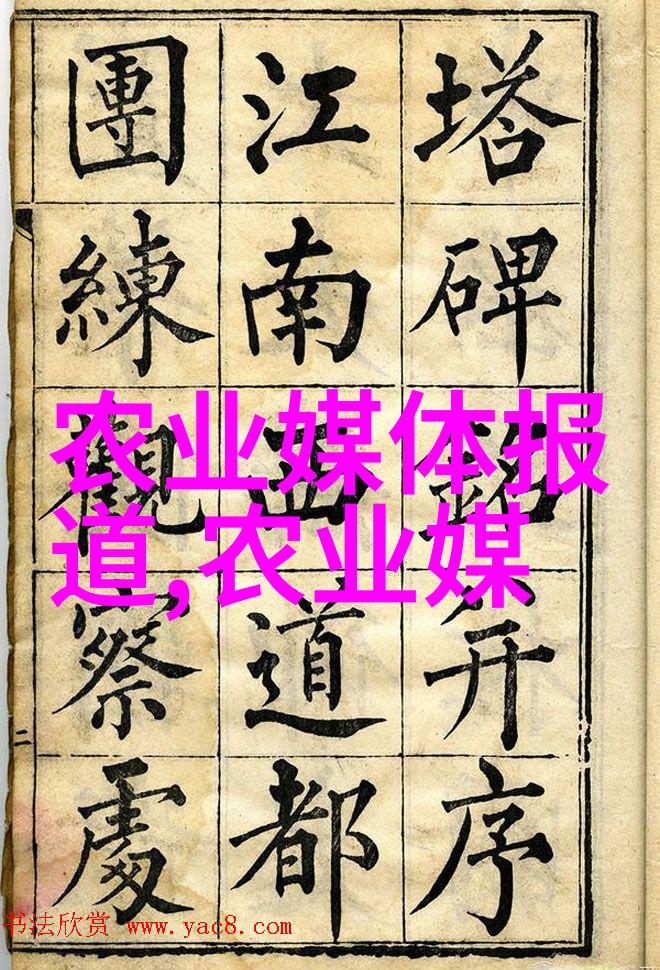 塔碑銘并序
江南西道都
團練觀察處
二
农业媒体报
道,农业媒
书法欣赏 www.yac8.com